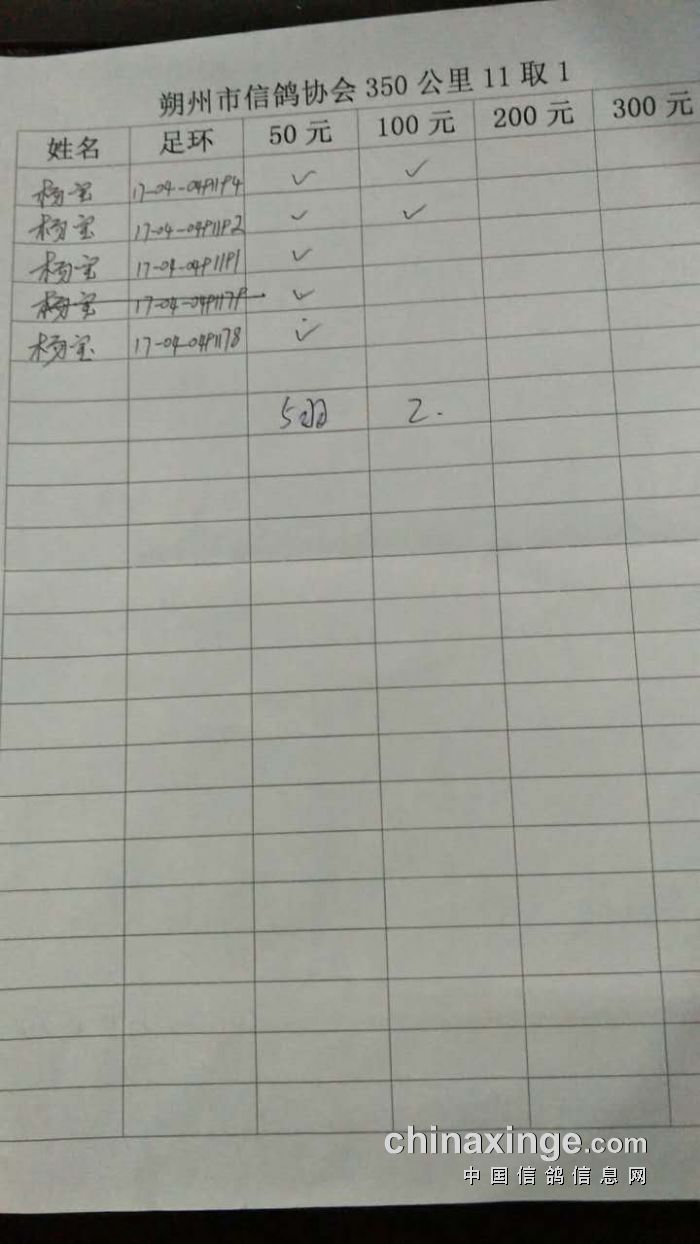 朔州市信鸽协会 350 公里 11 取 1
姓名 足环 50 元 100 元 200 元 300 元
杨宝 17-04-0491194 ✓ ✓
杨宝 17-04-0491192 ✓ ✓
杨宝 17-04-0491191 ✓
杨宝 17-04-0491179 ✓
杨宝 17-04-0491178 ✓
5羽 2.
chinaxinge.com
中国信鸽信息网